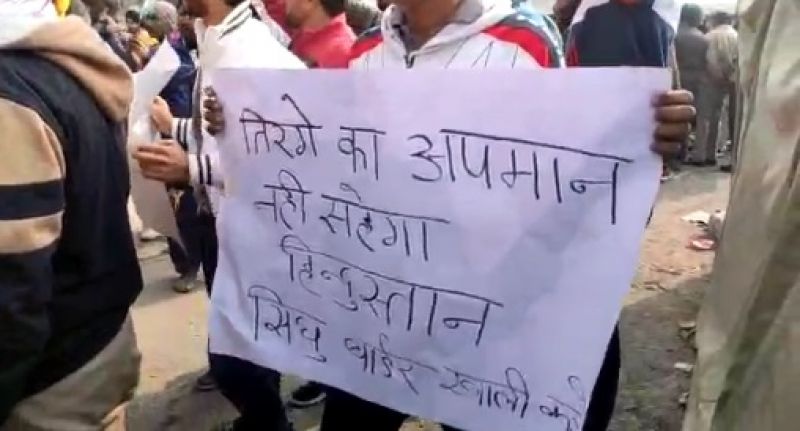 तिरगे का अपमान
नही सहेगा
हिन्दुस्तान
सिघु बार्डर खाली करो